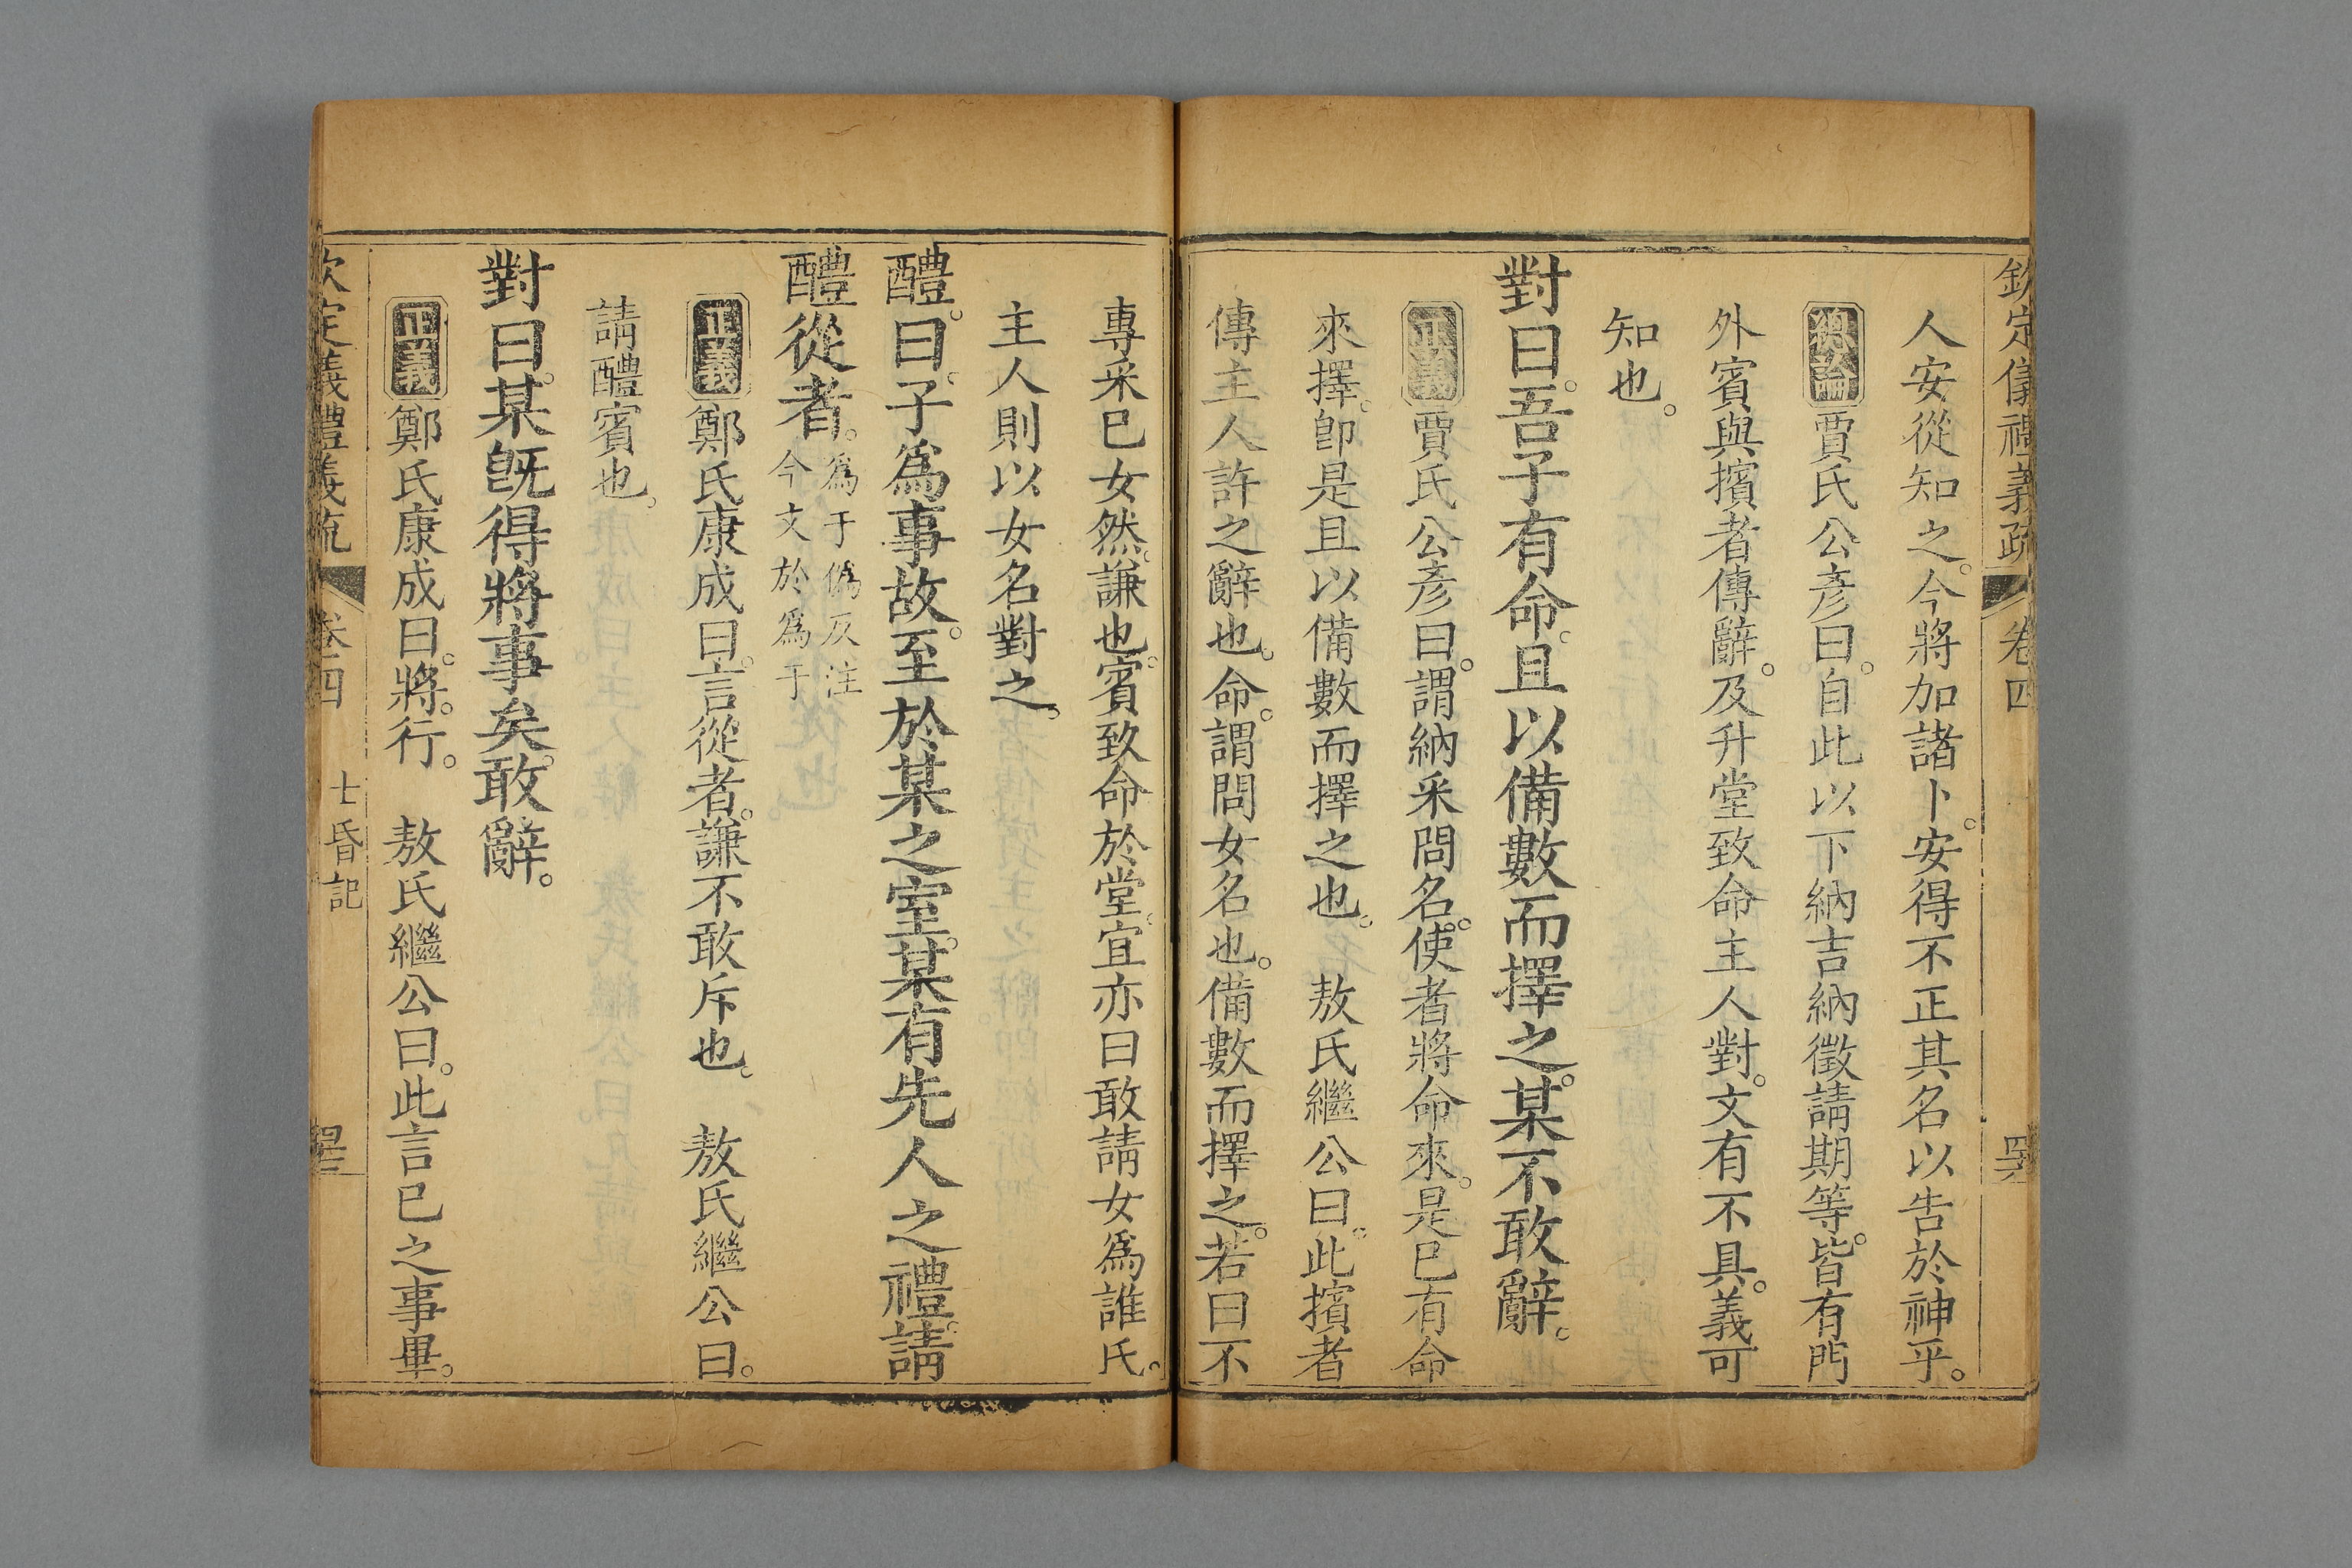 欽定儀禮義疏 卷四
人安從知之。今將加諸卜。安得不正其名以告於神乎。
總論 賈氏公彥曰。自此以下納吉納徵請期等。皆有門
外賓與擯者傳辭。及升堂致命主人對。文有不具。義可
知也。
對曰。吾子有命。且以備數而擇之。某不敢辭。
正義 賈氏公彥曰。謂納采問名。使者將命來。是已有命
來擇。卽是且以備數而擇之也。 敖氏繼公曰。此擯者
傳主人許之辭也。命。謂問女名也。備數而擇之。若曰不
專采已女然。謙也。賓致命於堂。宜亦曰敢請女爲誰氏。
主人則以女名對之。
醴。曰。子爲事故。至於某之室。某有先人之禮。請
醴從者。爲于僞反注
今文於爲于
正義 鄭氏康成曰。言從者。謙不敢斥也。 敖氏繼公曰。
請醴賓也。
對曰。某旣得將事矣。敢辭。
正義 鄭氏康成曰。將。行。 敖氏繼公曰。此言已之事畢。
欽定儀禮義疏 卷四 士昏記